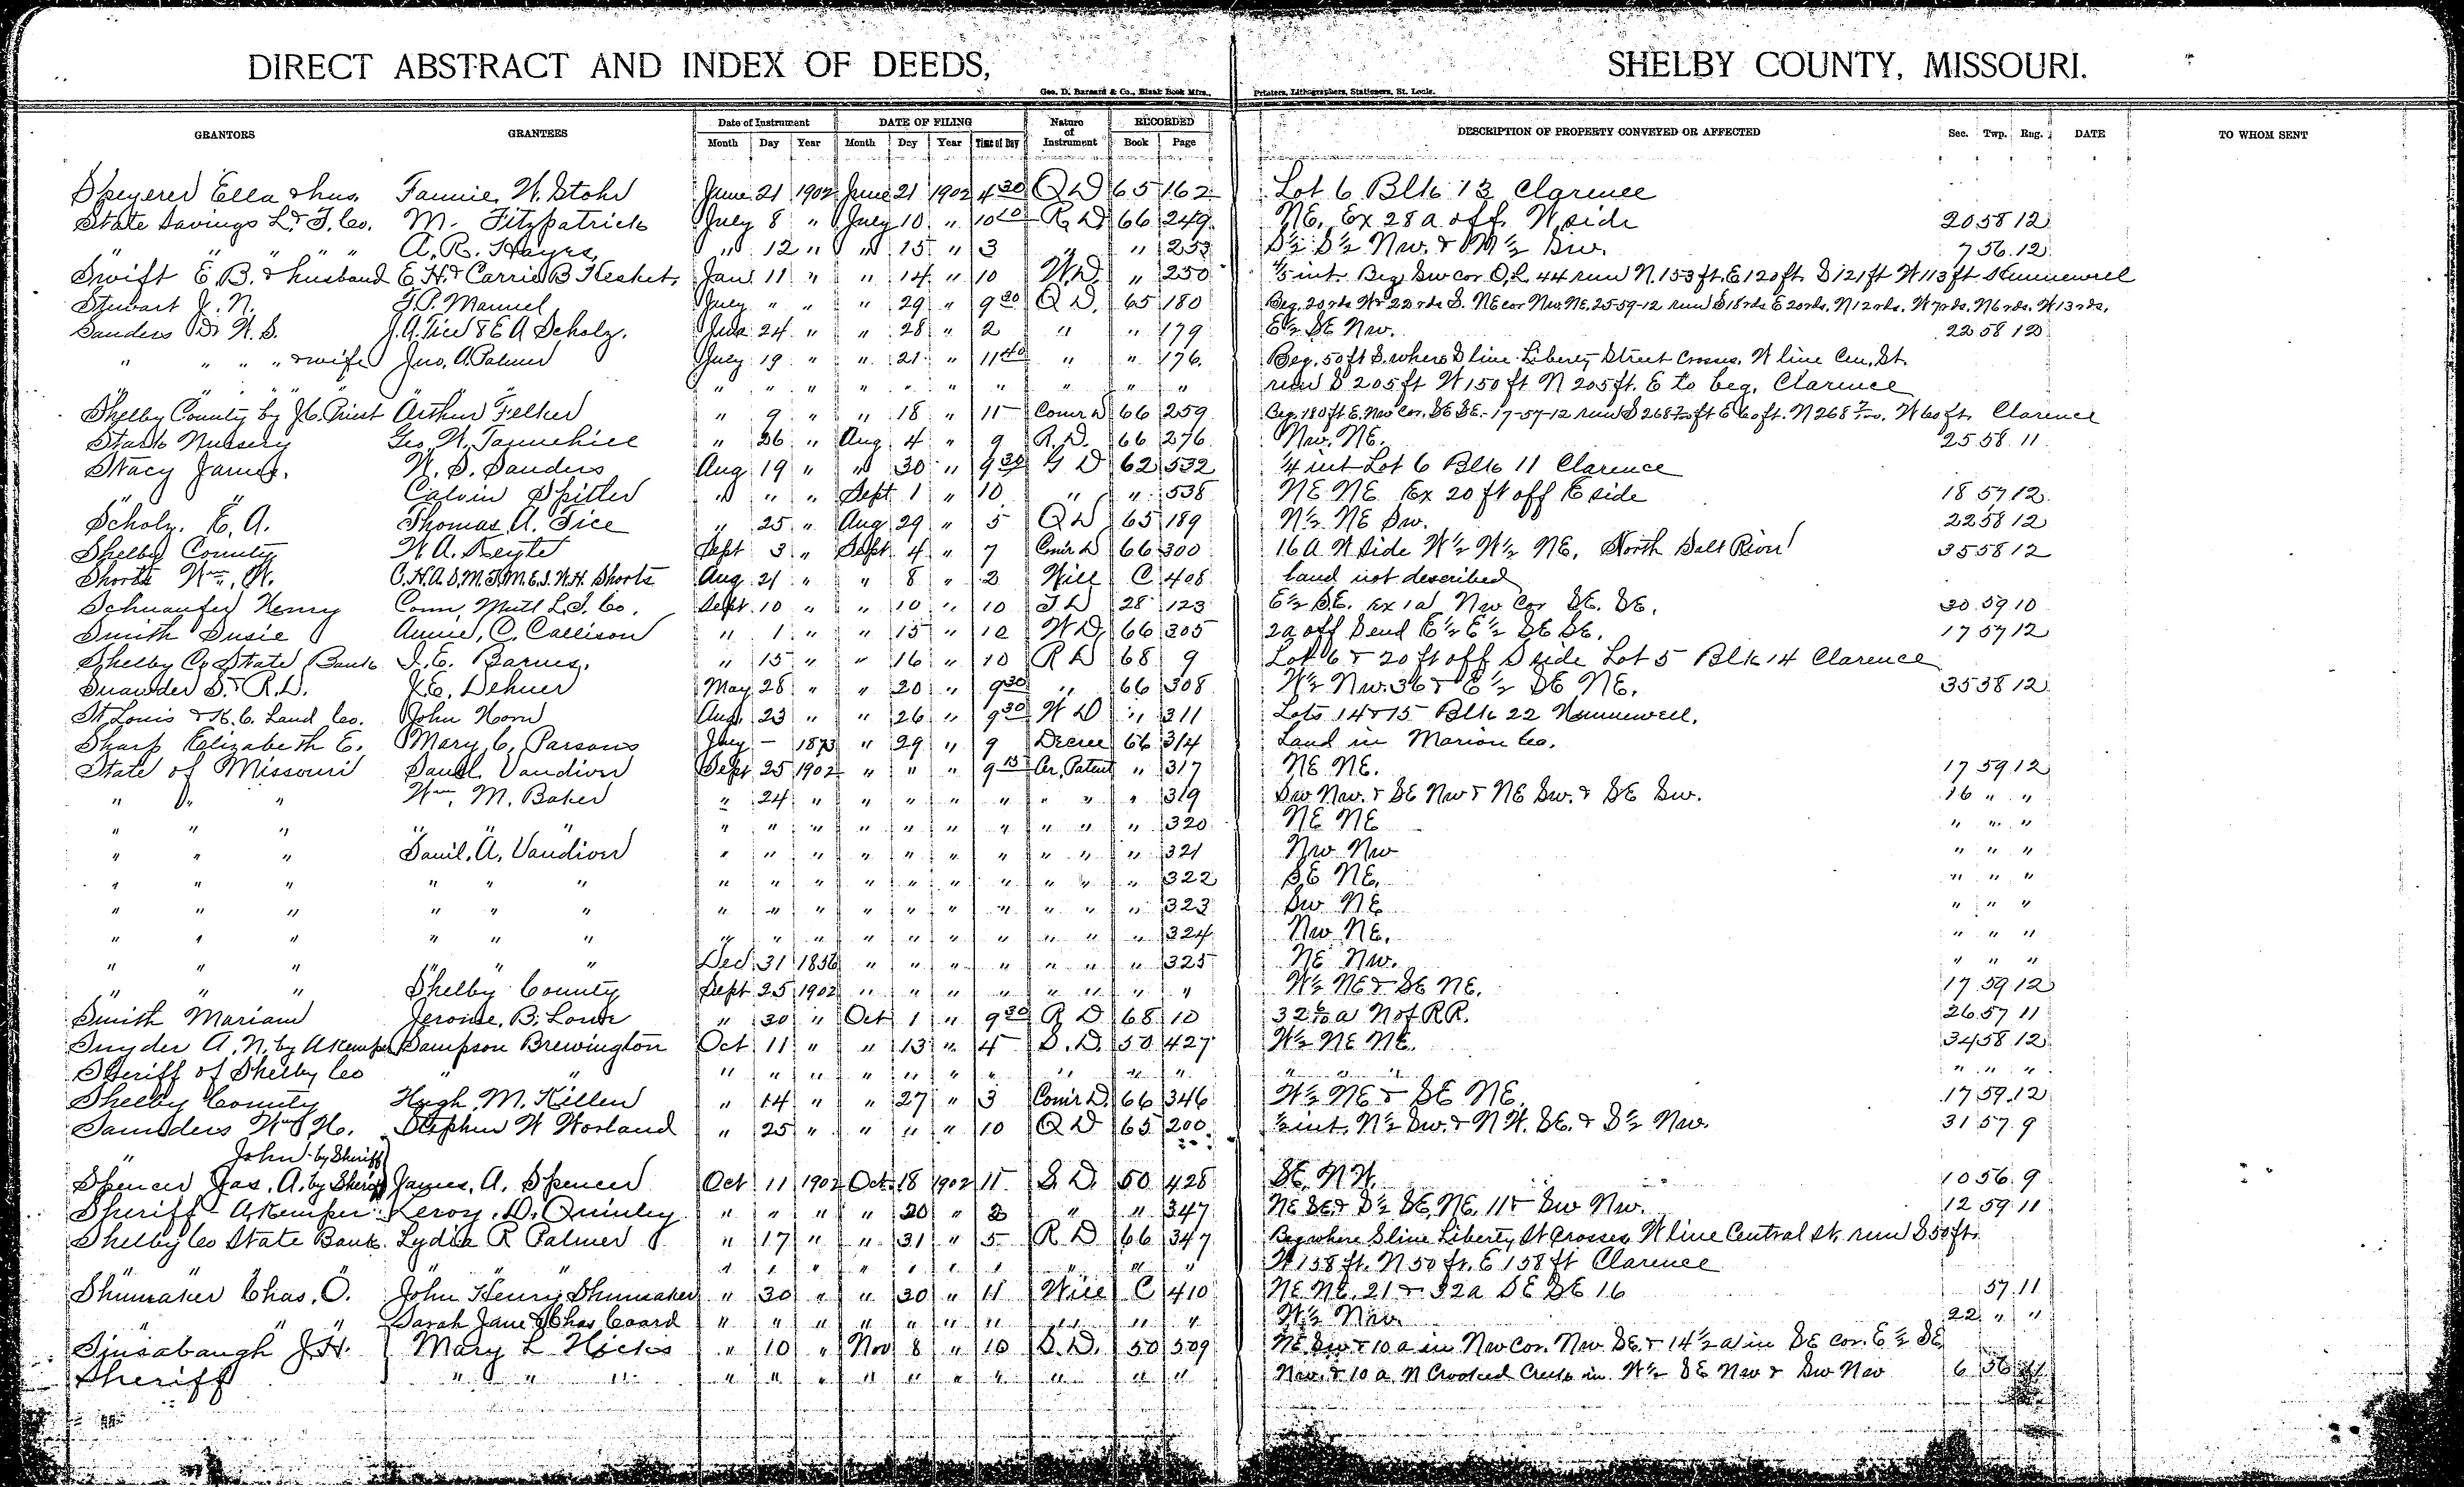 DIRECT ABSTRACT AND INDEX OF DEEDS, SHELBY COUNTY, MISSOURI.
Geo. D. Barnard & Co., Blank Book Mfrs., Printers, Lithographers, Stationers, St. Louis.
GRANTORS GRANTEES Date of Instrument DATE OF FILING Nature of Instrument RECORDED DESCRIPTION OF PROPERTY CONVEYED OR AFFECTED Sec. Twp. Rng. DATE TO WHOM SENT
Month Day Year Month Day Year Time of Day Book Page
Speyerer Ella & hus. Fannie W. Stohr June 21 1902 June 21 1902 4 30 Q D 65 162 Lot 6 Blk 13 Clarence
State Savings L. & T. Co. M. Fitzpatrick July 8 " July 10 " 10 R D 66 249 NE, Ex 28 a off W side 20 58 12
" " " " A. R. Hayes " 12 " " 15 " 3 " " 253 S½ S½ Nw. & N½ Sw. 7 56 12
Swift E. B. & husband E. H. & Carrie B Hesket Jan 11 " " 14 " 10 W.D. " 250 ⅕ int. Beg Sw cor O.L. 44 run N. 153 ft. E 120 ft. S 121 ft W 113 ft Hunnewell
Stewart J. N. Manuel July " " " 29 " 9 30 Q D. 65 180 Beg. 20 rds W & 22 rds S. NE cor Nw NE, 25-59-12 run S 18 rds E 20 rds. N 12 rds. W 7 rds. N 6 rds. W 13 rds.
Sanders Dr W. S. J. A. Tice & E A Scholz. 24 " " 28 " 2 " " 179 E½ SE Nw. 22 58 12
" " " " & wife Jno. A. Palmer July 19 " " 21 " 11 40 " " 176 Beg. 50 ft S. where S line Liberty Street crosses W line Cen. St.
" " " " " " " " " " " " " " run S 205 ft W 150 ft N 205 ft. E to beg. Clarence
Shelby County by J.C. Priest Arthur Felker " 9 " " 18 " 11 Com'r D 66 259 Beg. 180 ft E. Nw Cor. SE SE - 17-57-12 run S 268 ft E 60 ft. N 268 W 60 ft. Clarence
Stark Nursery Geo. W. Tannehill " 26 " Aug 4 " 9 R. D. 66 276 Nw. NE. 25 58 11
Stacy James. W. S. Sanders Aug 19 " " 30 " 9 30 G D 62 532 ¼ int Lot 6 Blk 11 Clarence
" " Calvin Spitler " " " Sept 1 " 10 " " 538 NE NE Ex 20 ft off E side 18 57 12
Scholz. E. A. Thomas A. Tice " 25 " Aug 29 " 5 Q D 65 189 N½ NE Sw. 22 58 12
Shelby County W A. Keyte Sept 3 " Sept 4 " 7 Com'r D 66 300 16 a W side W½ W½ NE, North Salt River 35 58 12
Shorts Wm. W. C.H.A.S.M.T.M.E.J.N.H. Shorts Aug 21 " " 8 " 2 Will C 408 land not described
Schnaufer Henry Conn. Mutl L. I. Co. Sept 10 " " 10 " 10 T D 28 123 E½ SE. Ex 1 a Nw Cor SE. SE. 30 59 10
Smith Susie Annie C. Callison " 1 " " 15 " 10 W D. 66 305 2 a off S end E½ E½ SE SE. 17 57 12
Shelby Co State Bank I. E. Barnes. " 15 " " 16 " 10 R D 68 9 Lot 6 & 20 ft off S side Lot 5 Blk 14 Clarence
S. & R.D. J.E. Dehner May 28 " " 20 " 9 30 " 66 308 W½ Nw. 36 & E½ SE NE. 35 38 12
St Louis & K. C. Land Co. John Horn Aug 23 " " 26 " 9 30 W D " 311 Lots 14 & 15 Blk 22 Hunnewell.
Sharp Elizabeth E. Mary C. Parsons July - 1873 " 29 " 9 Decree 66 314 Land in Marion Co.
State of Missouri Danl. Vandiver Sept 25 1902 " " " 9 15 Cer. Patent " 317 NE NE. 17 59 12
" " " Wm. M. Baker " 24 " " " " " " " " 319 Sw Nw. & SE Nw & NE Sw. & SE Sw. 16 " "
" " " " " " " " " " " " " " " " 320 NE NE " " "
" " " Danil. A. Vandiver " " " " " " " " " " 321 Nw Nw " " "
" " " " " " " " " " " " " " " " 322 SE NE. " " "
" " " " " " " " " " " " " " " " 323 Sw NE " " "
" " " " " " " " " " " " " " " " 324 Nw NE. " " "
" " " " " " Dec 31 1856 " " " " " " " 325 NE Nw. " " "
" " " Shelby County Sept 25 1902 " " " " " " " " W½ NE & SE NE. 17 59 12
Smith Mariam Jerome B. Lowe " 30 " Oct 1 " 9 30 R D 68 10 32 6/10 a N of RR. 26 57 11
Snyder A. N. by A Kemper Sampson Brewington Oct 11 " " 13 " 4 S. D. 50 427 W½ NE NE. 34 58 12
Sheriff of Shelby Co " " " " " " " " " " " " " " " " " " "
Shelby County Hugh M. Killen " 14 " " 27 " 3 Com'r D. 66 346 W½ NE & SE NE. 17 59 12
Saunders Wm H. Stephen W Worland " 25 " " " " 10 Q D 65 200 ½ int. N½ Sw. & N W. SE. & S½ Nw. 31 57 9
" John by Sheriff
Spencer Jas. A. by Sheriff James A. Spencer Oct 11 1902 Oct 18 1902 11 S. D. 50 428 SE. N W. 10 56 9
Sheriff - A Kemper Leroy D. Quinley " " " " 20 " 2 " " 347 NE SE & S½ SE, NE. 11 & Sw Nw. 12 59 11
Shelby Co State Bank. Lydia R Palmer " 17 " " 31 " 5 R D 66 347 Beg where S line Liberty St Crosses W line Central St. run S 50 ft.
" " " " " " " " " " " " " " " " W 158 ft. N 50 ft. E 158 ft Clarence
Shumaker Chas. O. John Henry Shumaker " 30 " " 30 " 11 Will C 410 NE NE. 21 & 32 a SE SE 16 57 11
" " " Sarah Jane & Chas Coard " " " " " " " " " " W½ Nw. 22 " "
Sinsabaugh J. H. Mary L Hicks " 10 " Nov 8 " 10 S. D. 50 509 NE Sw & 10 a in Nw Cor. Nw SE. & 14½ a in SE cor. E½ SE
Sheriff " " " " " " " " " " " " " Nw. & 10 a N Crooked Creek in W½ SE Nw & Sw Nw 6 56 11